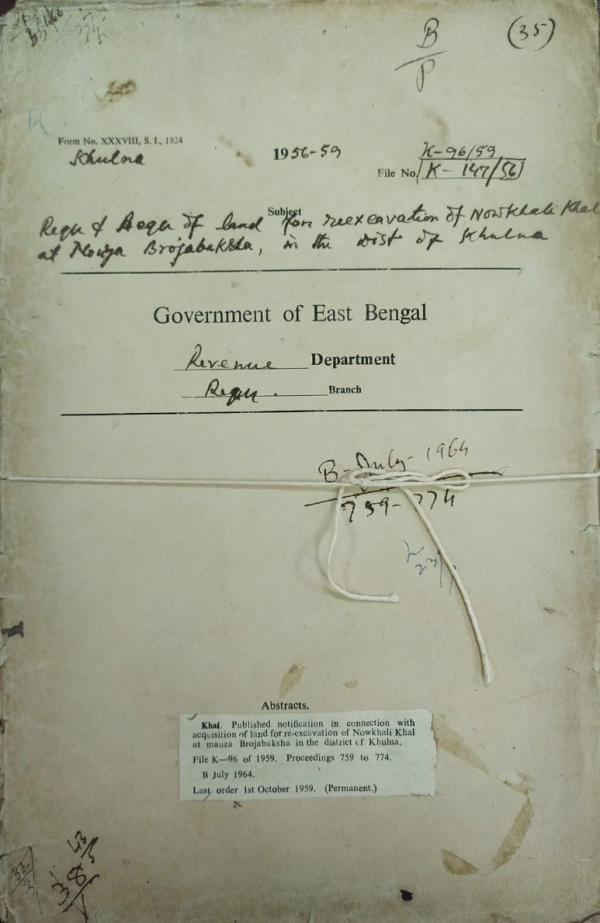 B
P
(35)
Form No. XXXVIII, S. I., 1924
Khulna
1956-59
K-96/59
File No. K-147/56
Subject
Requ & Acqu of land for reexcavation of Nowkhali Khal
at Mouza Brojabaksha, in the Dist of Khulna
Government of East Bengal
Revenue Department
Requ. Branch
B-July-1964
759-774
Abstracts.
Khal. Published notification in connection with
acquisition of land for re-excavation of Nowkhali Khal
at mauza Brojabaksha in the district of Khulna.
File K—96 of 1959. Proceedings 759 to 774.
B July 1964.
Last order 1st October 1959. (Permanent.)